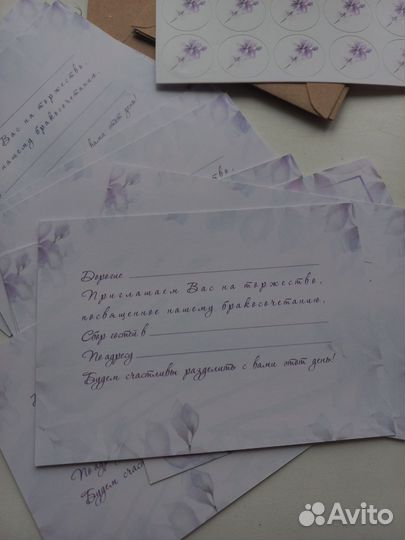 Вас на торжество,
нашему бракосочетанию.
вами этот день!
Дорогие
Приглашаем Вас на торжество,
посвященное нашему бракосочетанию.
Сбор гостей в
По адресу
Будем счастливы разделить с вами этот день!
По адресу
Будем счас
Avito